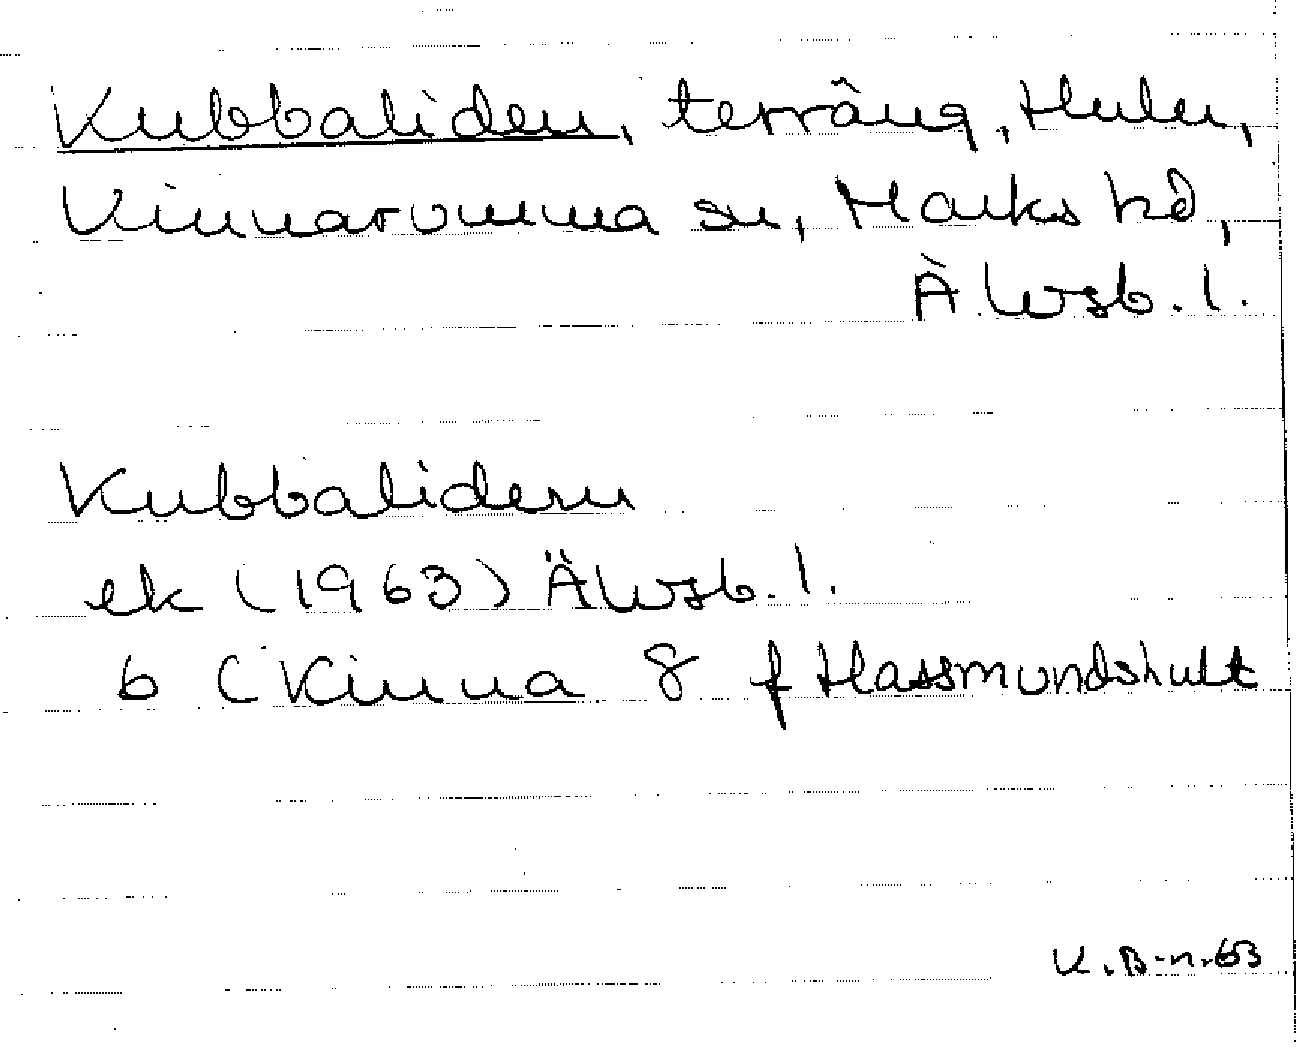 Kubbaliden, terräng, Hulu,
Kinnarumma sn, Marks hd,
Älvsb. l.
Kubbaliden
ek (1963) Älvsb. l.
b (Kinna 8 f Hassmundshult
K.B-n.63